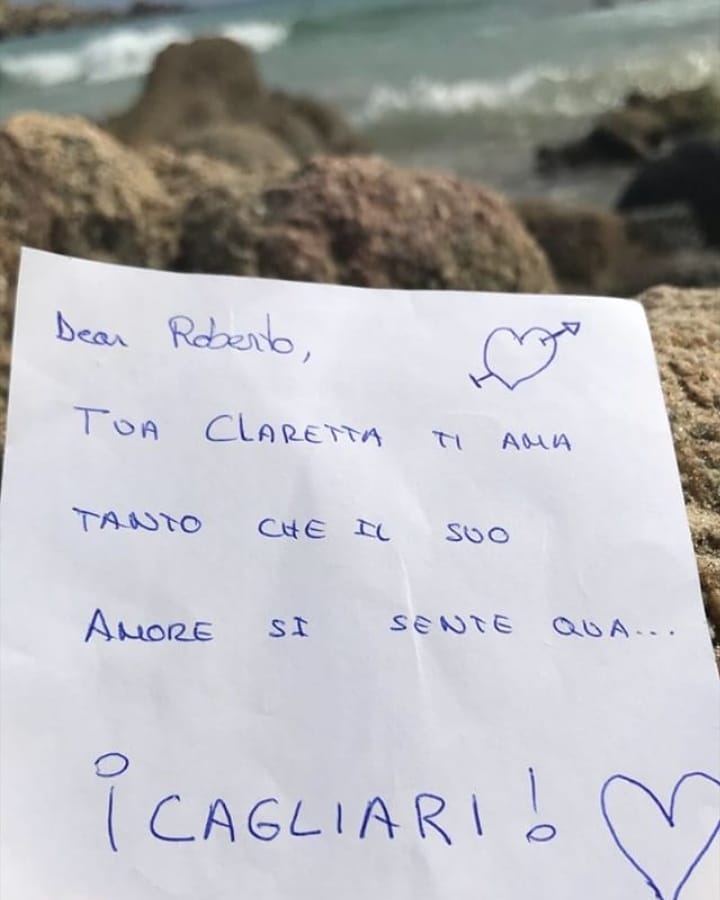 Dear Roberto,
TUA CLARETTA TI AMA
TANTO CHE IL SUO
AMORE SI SENTE QUA...
¡CAGLIARI!